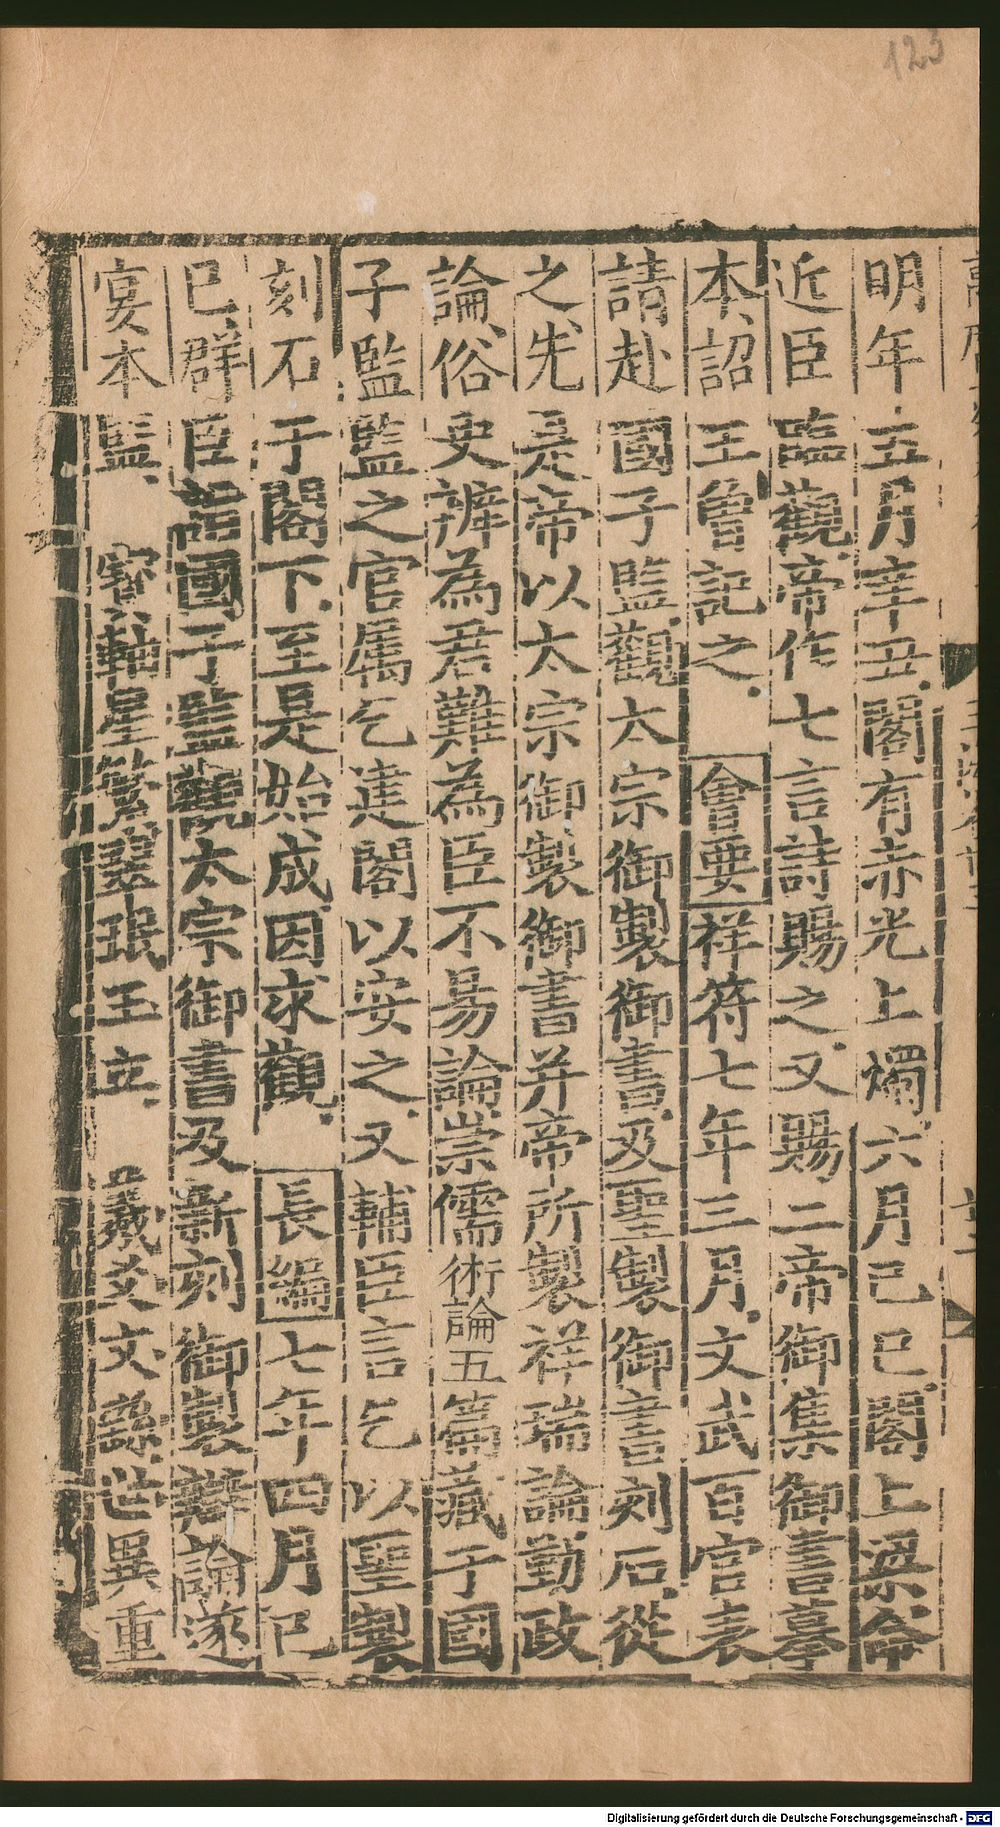 123
明年五月辛丑閣有赤光上燭六月己巳閣上梁命
近臣臨觀帝作七言詩賜之又賜二帝御集御書摹
本詔王曾記之 會要祥符七年三月文武百官表
請赴國子監觀太宗御製御書及聖製御書刻石從
之先是帝以太宗御製御書并帝所製祥瑞論勤政
論俗吏辨為君難為臣不易論崇儒術論五篇藏于國
子監監之官屬乞建閣以安之又輔臣言乞以聖製
刻石于閣下至是始成因求觀 長編七年四月己
巳群臣詣國子監觀太宗御書及新刻御製辨論遂
宴本監 寶軸星繁翠珉玉立 羲爻文繇世異重
Digitalisierung gefördert durch die Deutsche Forschungsgemeinschaft - DFG